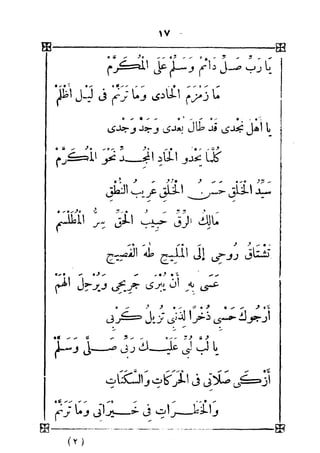 ١٧
يَا رَبِّ صَلِّ دَائِمْ وَسَلِّمْ عَلَى الْمُكَرَّمْ
مَا زَمْزَمَ الْحَادِى وَمَا تَرَنَّمْ فِى لَيْلِ أَظْلَمْ
يَا أَهْلَ نَجْدِى قَدْ طَالَ بُعْدِى وَجَدَّ وَجْدِى
كُلَّمَا يَحْدُو الْحَادِ الْمُجِدّ نَحْوَ الْمُكَرَّمْ
سَيِّدُ الْخَلْقِ حَسَنُ الْخُلْقِ عَرِيبُ النُّطْقِ
مَالِكُ الرِّقِّ حَبِيبُ الْحَقِّ سِرُّ الْمُطَلْسَمْ
تَشْتَاقُ رُوحِى إِلَى الْمَلِيحِ طٰهَ الْفَصِيحِ
عَسَى بِهِ أَنْ يُبْرَى جَرِيحِى وَيَرْحَلَ الْهَمّ
أَرْجُوكَ حَسْبِى ذُخْرًا لِذَنْبِى تُزِيلُ كَرْبِى
يَا لُبَّ لُبِّى عَلَيْكَ رَبِّى صَلَّى وَسَلَّمْ
أَزْكَى صَلَاتِى فِى الْحَرَكَاتِ وَالسَّكَنَاتِ
وَالْخَطَرَاتِ فِى خَيْرَاتِى وَمَا تَرَنَّمْ
(٢)